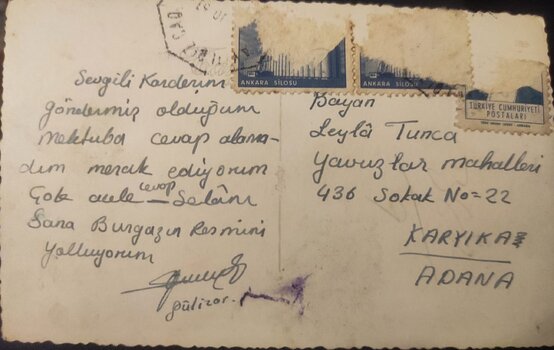 Sevgili Kardeşim
göndermiş olduğum
mektuba cevap alama-
dım merak ediyorum
Çok acele cevap – Selâm
Sana Burgazın Resmini
Yolluyorum
Gülizar.
ANKARA SİLOSU
ANKARA SİLOSU
TÜRKİYE CUMHURİYETİ
POSTALARI
Bayan
Leylâ Tunca
Yavuzlar mahallesi
436 Sokak No=22
KARŞIYAKA
ADANA